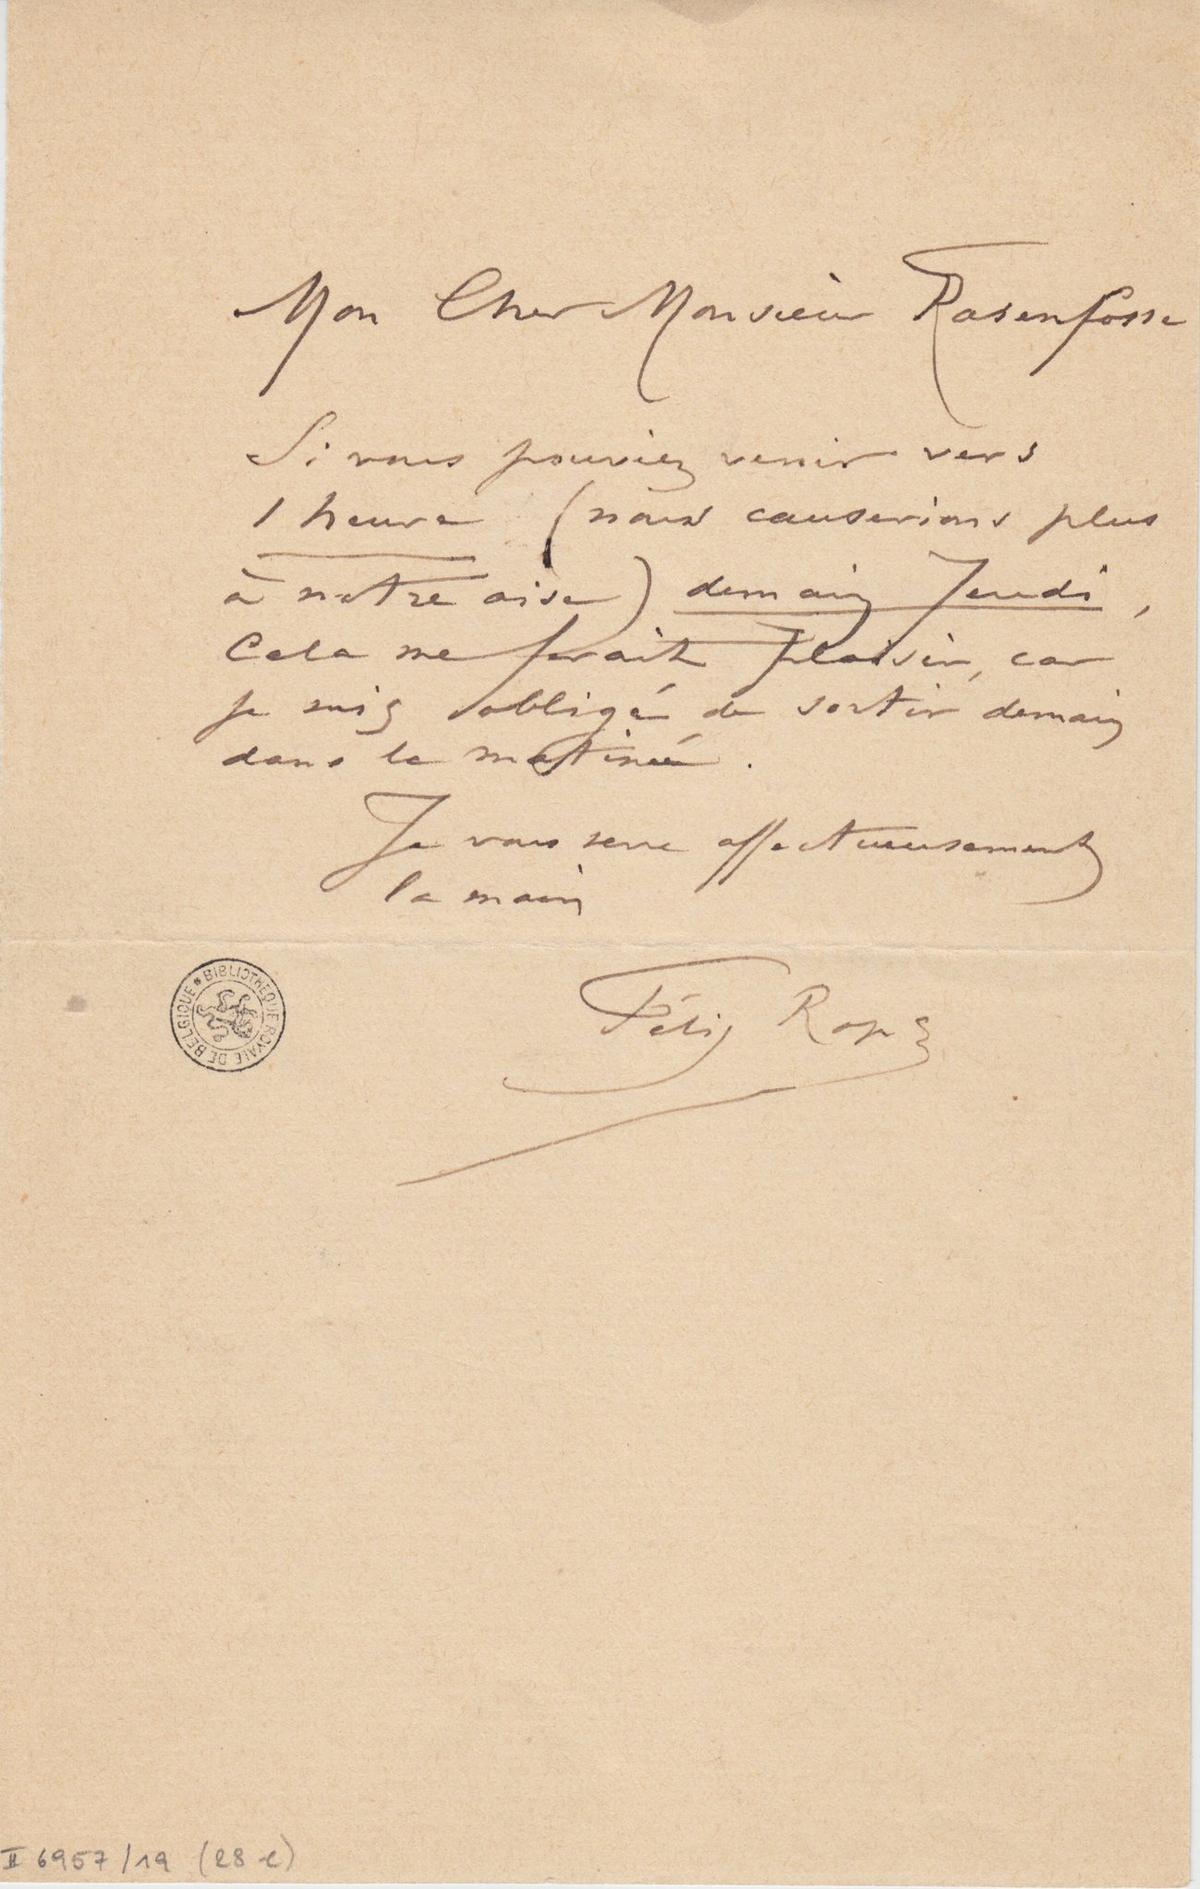 Mon Cher Monsieur Rasenfosse
Si vous pouviez venir vers
1 heure (nous causerions plus
à notre aise) demain Jeudi,
Cela me ferait plaisir, car
je suis obligé de sortir demain
dans la matinée.
Je vous serre affectueusement
la main
Félix Rops
BIBLIOTHEQUE ROYALE DE BELGIQUE *
II 6957/19 (28 e)